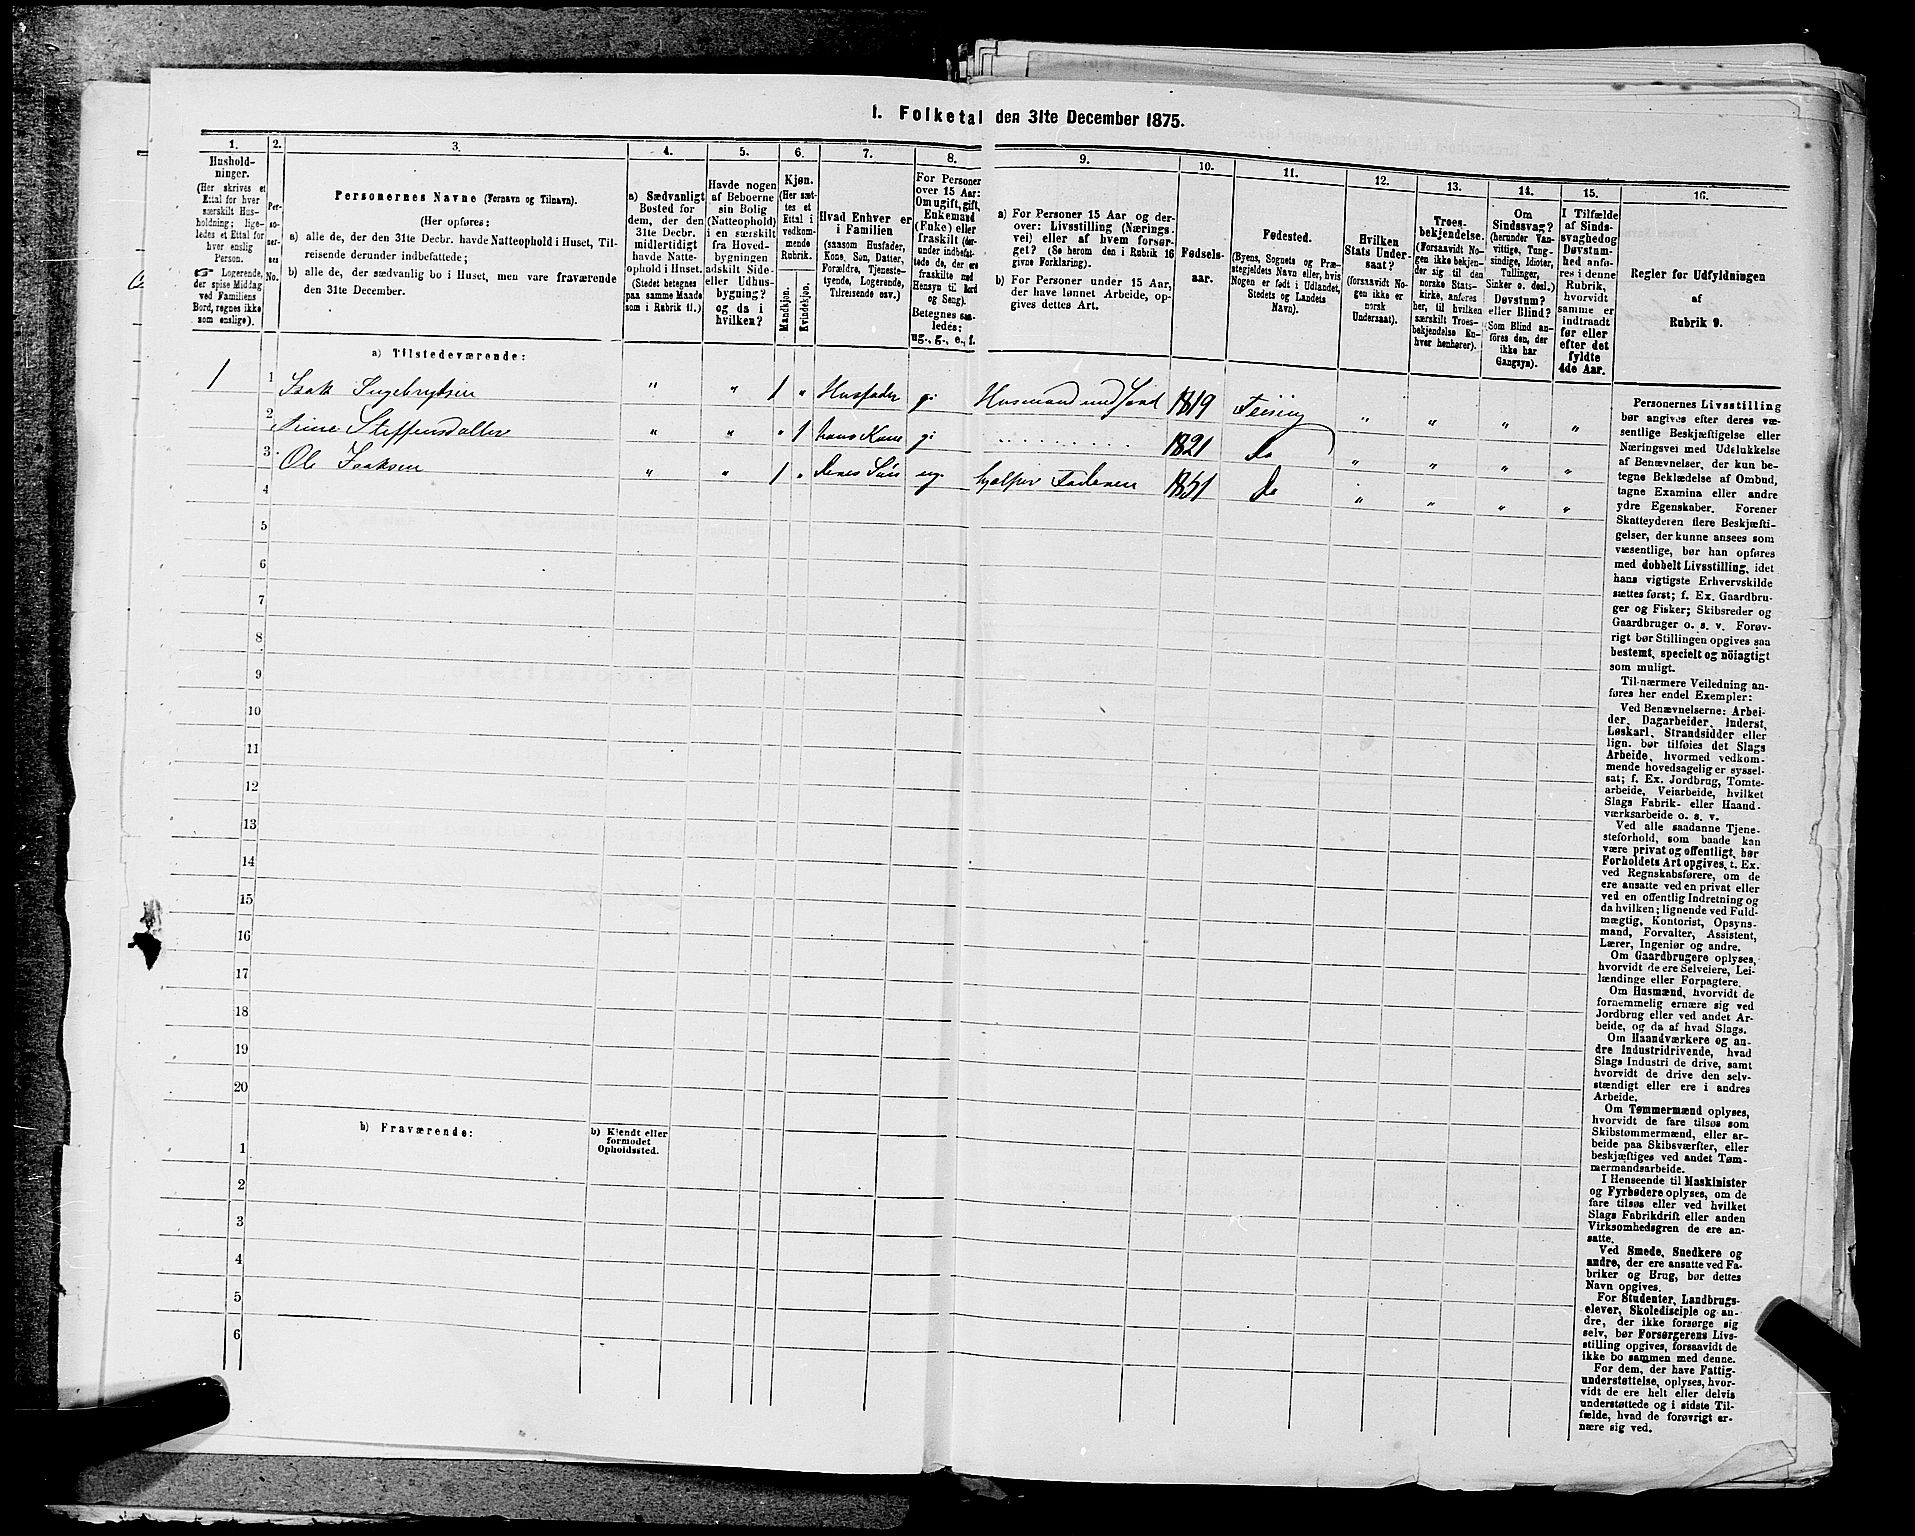 1. Folketal den 31te December 1875.
1. 2. 3. 4. 5. 6. 7. 8. 9. 10. 11. 12. 13. 14. 15. 16.
Hushold-
ninger.
(Her skrives et
Ettal for hver
særskilt Hus-
holdning; lige-
ledes et Ettal for
hver enslig
Person.
Logerende,
der spise Middag
ved Familiens
Bord, regnes ikke
som enslige).
Per-
so-
ner-
nes
No.
Personernes Navne (Fornavn og Tilnavn).
(Her opføres:
a) alle de, der den 31te Decbr. havde Natteophold i Huset, Til-
reisende derunder indbefattede;
b) alle de, der sædvanlig bo i Huset, men vare fraværende
den 31te December.
a) Sædvanligt
Bosted for
dem, der den
31te Decbr.
midlertidigt
havde Natte-
ophold i Huset.
(Stedet betegnes
paa samme Maade
som i Rubrik 11.)
Havde nogen
af Beboerne
sin Bolig
(Natteophold)
i en særskilt
fra Hoved-
bygningen
adskilt Side-
eller Udhus-
bygning?
og da i
hvilken?
Kjøn.
(Her sæt-
tes et
Ettal i
vedkom-
mende
Rubrik.
Mandkjøn.
Kvindekjøn.
Hvad Enhver er
i Familien
(saasom Husfader,
Kone, Søn, Datter,
Forældre, Tjeneste-
tyende, Logerende,
Tilreisende osv.)
For Personer
over 15 Aar:
Om ugift, gift,
Enkemand
(Enke) eller
fraskilt (der-
under indbefat-
tede de, der ere
fraskilte med
Hensyn til Bord
og Seng).
Betegnes saa-
ledes:
ug., g., e., f.
a) For Personer 15 Aar og der-
over: Livsstilling (Nærings-
vei) eller af hvem forsør-
get? (Se herom den i Rubrik 16
givne Forklaring).
b) For Personer under 15 Aar,
der have lønnet Arbeide, op-
gives dettes Art.
Fødsels-
aar.
Fødested.
(Byens, Sognets og Præ-
stegjeldets Navn eller, hvis
Nogen er født i Udlandet,
Stedets og Landets
Navn).
Hvilken
Stats Under-
saat?
(forsaavidt No-
gen ikke er
norsk
Undersaat).
Troes-
bekjendelse.
(Forsaavidt No-
gen ikke bekjen-
der sig til den
norske Stats-
kirke, anføres
her, til hvilken
særskilt Troes-
bekjendelse En-
hver henhører).
Om
Sindssvag?
(herunder Van-
vittige, Tung-
sindige, Idioter,
Tullinger,
Sinker o. desl.)
Døvstum?
eller Blind?
(Som Blind an-
føres den, der
ikke har
Gangsyn).
I Tilfælde
af Sinds-
svaghed og
Døvstum-
hed anfø-
res i denne
Rubrik,
hvorvidt
samme er
indtraadt
før eller
efter det
fyldte
4de Aar.
Regler for Udfyldningen
af
Rubrik 9.
a) Tilstedeværende:
1 1 Isak Ingebrytsen " " 1 " Husfader gi Husmand med Jord 1819 " " " "
2 Steffensdatter " " " 1 hans Kone gi 1821 do " " " "
3 Ole Isaksen " " 1 " deres Søn ug. hjelper Faderen 1851 do " " " "
4
5
6
7
8
9
10
11
12
13
14
15
16
17
18
19
20
b) Fraværende:
b) Kjendt eller
formodet
Opholdssted.
1
2
3
4
5
6
Personernes Livsstilling
bør angives efter deres væ-
sentlige Beskjæftigelse eller
Næringsvei med Udelukkelse
af Benævnelser, der kun be-
tegne Beklædelse af Ombud,
tagne Examina eller andre
ydre Egenskaber. Forener
Skatteyderen flere Beskjæfti-
gelser, der kunne ansees som
væsentlige, bør han opføres
med dobbelt Livsstilling, idet
hans vigtigste Erhvervskilde
sættes først; f. Ex. Gaardbru-
ger og Fisker; Skibsreder og
Gaardbruger o. s. v. Forøv-
rigt bør Stillingen opgives saa
bestemt, specielt og nöiagtigt
som muligt.
Til nærmere Veiledning an-
føres her endel Exempler:
Ved Benævnelserne: Arbei-
der, Dagarbeider, Inderst,
Løskarl, Strandsidder eller
lign. bør tilføies det Slags
Arbeide, hvormed vedkom-
mende hovedsagelig er syssel-
sat; f. Ex. Jordbrug, Tomte-
arbeide, Veiarbeide, hvilket
Slags Fabrik- eller Haand-
værksarbeide o. s. v.
Ved alle saadanne Tjene-
steforhold, som baade kan
være privat og offentligt, bør
Forholdets Art opgives, t. Ex.
ved Regnskabsførere, om de
ere ansatte ved en privat eller
ved en offentlig Indretning og
da hvilken; lignende ved Fuld-
mægtig, Kontorist, Opsyns-
mand, Forvalter, Assistent,
Lærer, Ingeniør og andre.
Om Gaardbrugere oplyses,
hvorvidt de ere Selveiere, Lei-
lændinge eller Forpagtere.
Om Husmænd, hvorvidt de
fornemmelig ernære sig ved
Jordbrug eller ved andet Ar-
beide, og da af hvad Slags.
Om Haandværkere og an-
dre Industridrivende, hvad
Slags Industri de drive, samt
hvorvidt de drive den selv-
stændigt eller ere i andres
Arbeide.
Om Tømmermænd oplyses,
hvorvidt de fare tilsøs som
Skibstømmermænd, eller ar-
beide paa Skibsværfter, eller
beskjæftiges ved andet Tøm-
mermandsarbeide.
I Henseende til Maskinister
og Fyrbødere oplyses, om de
fare tilsøs eller ved hvilket
Slags Fabrikdrift eller anden
Virksomhedsgren de ere an-
satte.
Ved Smede, Snedkere og
andre, der ere ansatte ved Fa-
briker og Brug, bør dettes
Navn opgives.
For Studenter, Landbrugs-
elever, Skoledisciple og an-
dre, der ikke forsørge sig
selv, bør Forsørgerens Livs-
stilling opgives, forsaavidt de
ikke bo sammen med denne.
For dem, der have Fattig-
understøttelse, oplyses, hvor-
vidt de ere helt eller delvis
understøttede og i sidste Til-
fælde, hvad de forøvrigt er-
nære sig ved.